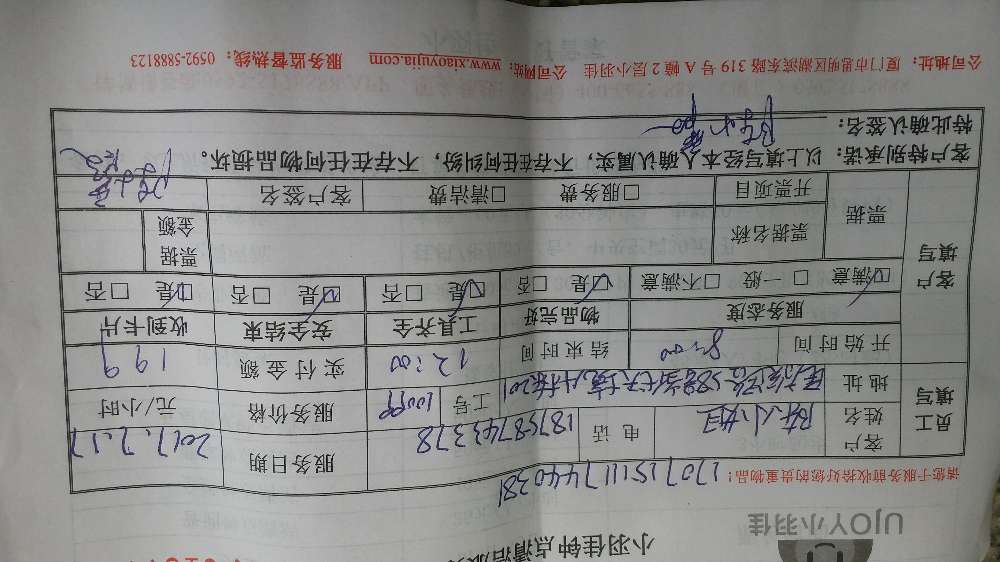 小羽佳钟点清洁服
UJOY小羽佳
请您于服务前收拾好您的贵重物品!
170715111744038
员工填写
客户姓名 陈小姐 电话 18758743378 服务日期 2017.7.17
地址 工号 服务价格 元/小时
开始时间 8:00 结束时间 12:00 实付金额 199
客户填写
服务态度 物品完好 工具齐全 安全结束 收到卡片
☑满意 □一般 □不满意 ☑是 □否 ☑是 □否 ☑是 □否 ☑是 □否
票据 票据名称 票据金额
开票项目 □服务费 □清洁费 客户签名
客户特别承诺: 以上填写经本人确认属实, 不存在任何纠纷, 不存在任何物品损坏。
特此确认签名:
公司地址: 厦门市思明区湖滨东路 319 号 A 幢 2 层小羽佳 公司网站: www.xiaoyujia.com 服务监督热线: 0592-5888123